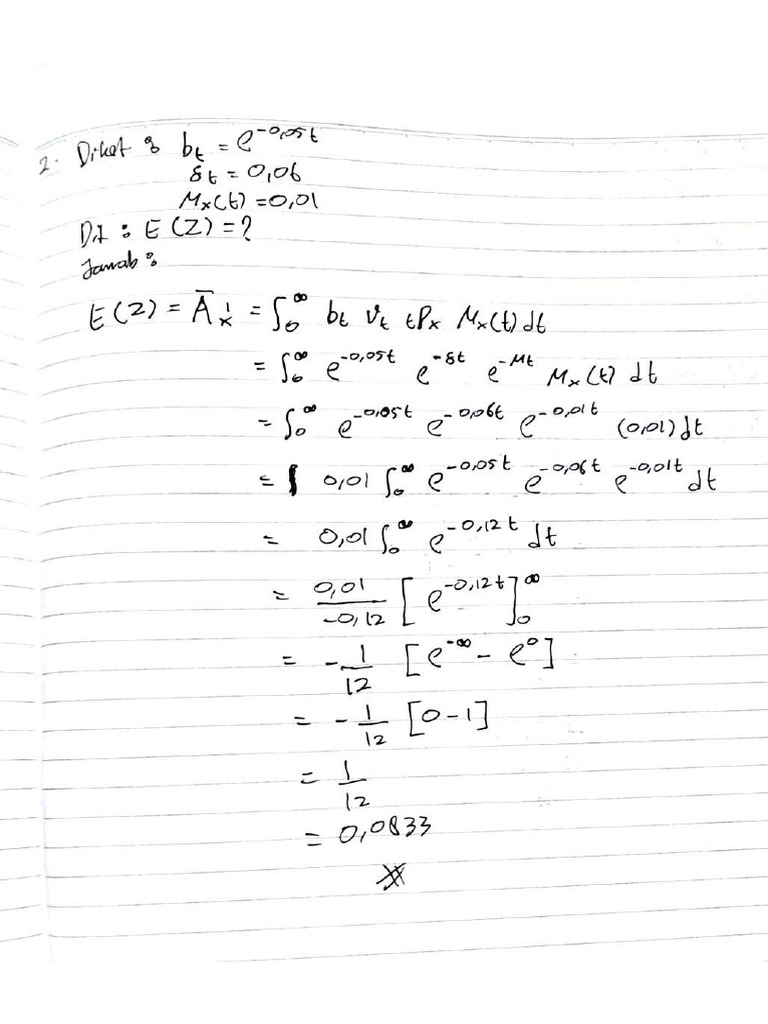 2. Diket : b_t = e^{-0,05t}
δ_t = 0,06
M_x(t) = 0,01
Dit : E(Z) = ?
Jawab :
E(Z) = Ā^1_x = ∫_0^∞ b_t v_t tP_x M_x(t) dt
= ∫_0^∞ e^{-0,05t} e^{-δt} e^{-Mt} M_x(t) dt
= ∫_0^∞ e^{-0,05t} e^{-0,06t} e^{-0,01t} (0,01) dt
= 0,01 ∫_0^∞ e^{-0,05t} e^{-0,06t} e^{-0,01t} dt
= 0,01 ∫_0^∞ e^{-0,12t} dt
= 0,01/-0,12 [e^{-0,12t}]_0^∞
= -1/12 [e^{-∞} - e^0]
= -1/12 [0 - 1]
= 1/12
= 0,0833